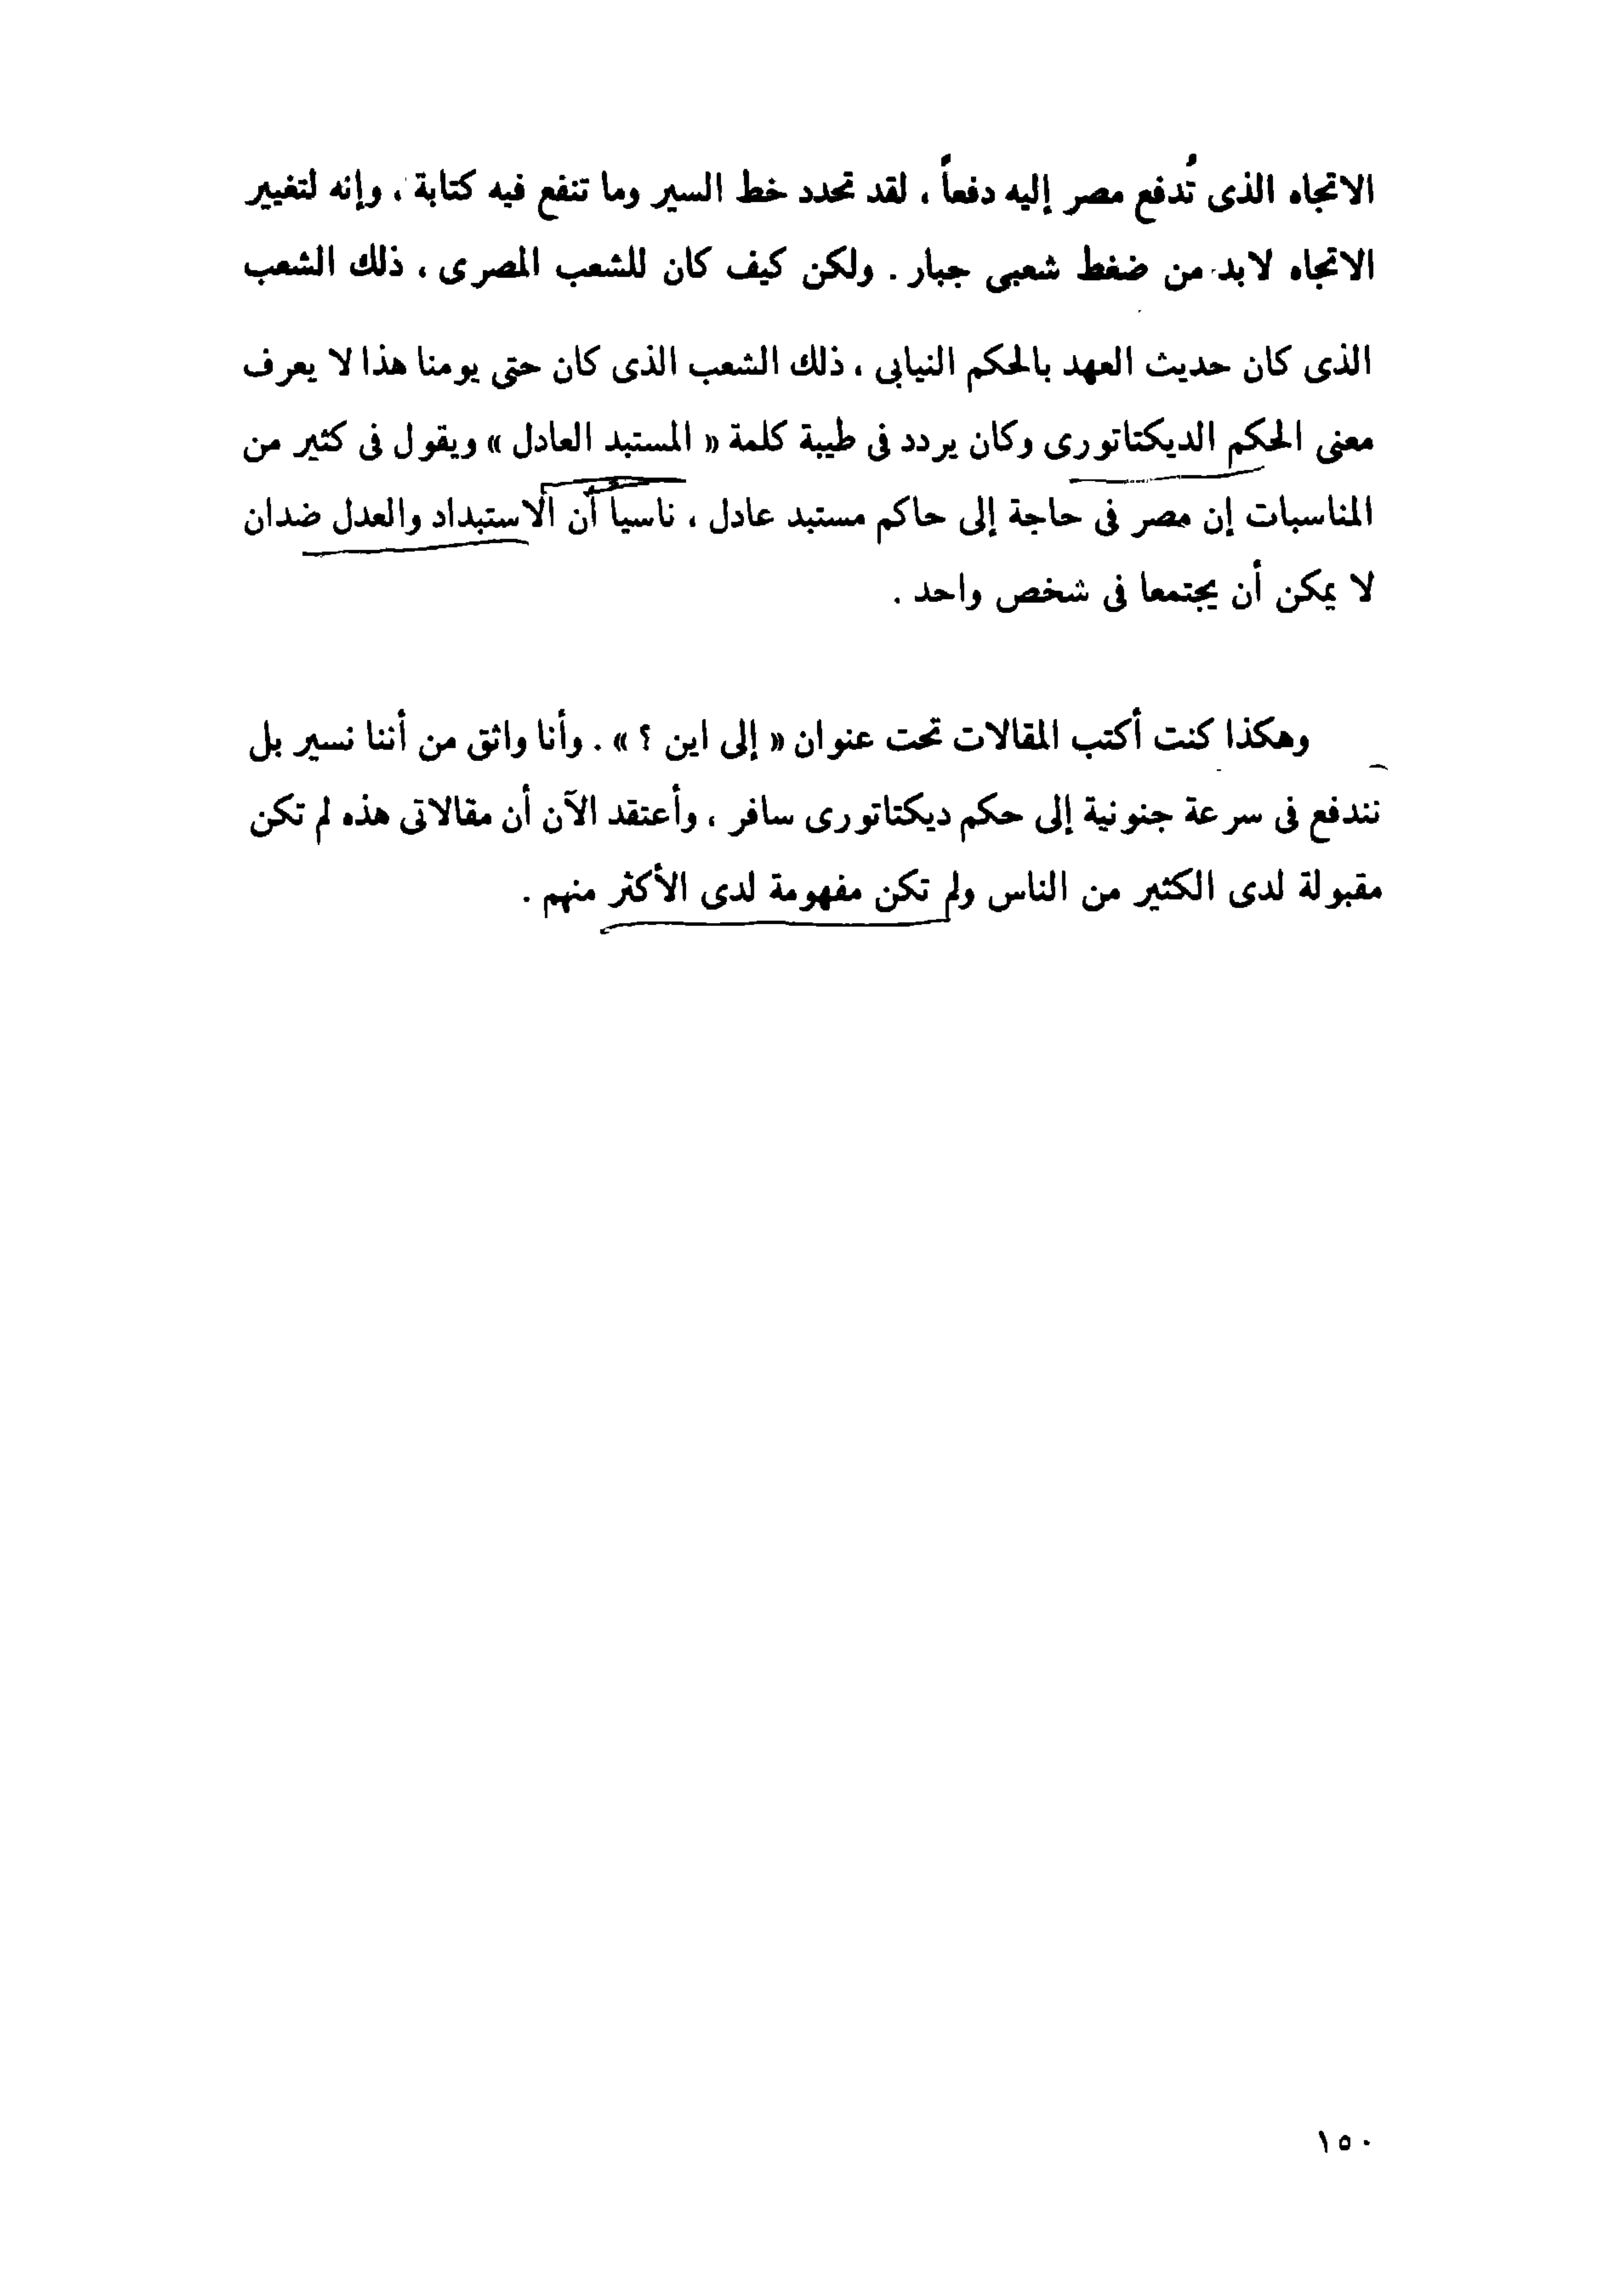 الاتجاه الذى تُدفع مصر إليه دفعاً ، لقد تحدد خط السير وما تنفع فيه كتابة ، وإنه لتغيير
الاتجاه لابد من ضغط شعبى جبار . ولكن كيف كان للشعب المصرى ، ذلك الشعب
الذى كان حديث العهد بالحكم النيابى ، ذلك الشعب الذى كان حتى يومنا هذا لا يعرف
معنى الحكم الديكتاتورى وكان يردد فى طيبة كلمة « المستبد العادل » ويقول فى كثير من
المناسبات إن مصر فى حاجة إلى حاكم مستبد عادل ، ناسيا أن الاستبداد والعدل ضدان
لا يمكن أن يجتمعا فى شخص واحد .
وهكذا كنت أكتب المقالات تحت عنوان « إلى اين ؟ » . وأنا واثق من أننا نسير بل
نندفع فى سرعة جنونية إلى حكم ديكتاتورى سافر ، وأعتقد الآن أن مقالاتى هذه لم تكن
مقبولة لدى الكثير من الناس ولم تكن مفهومة لدى الأكثر منهم .
١٥٠